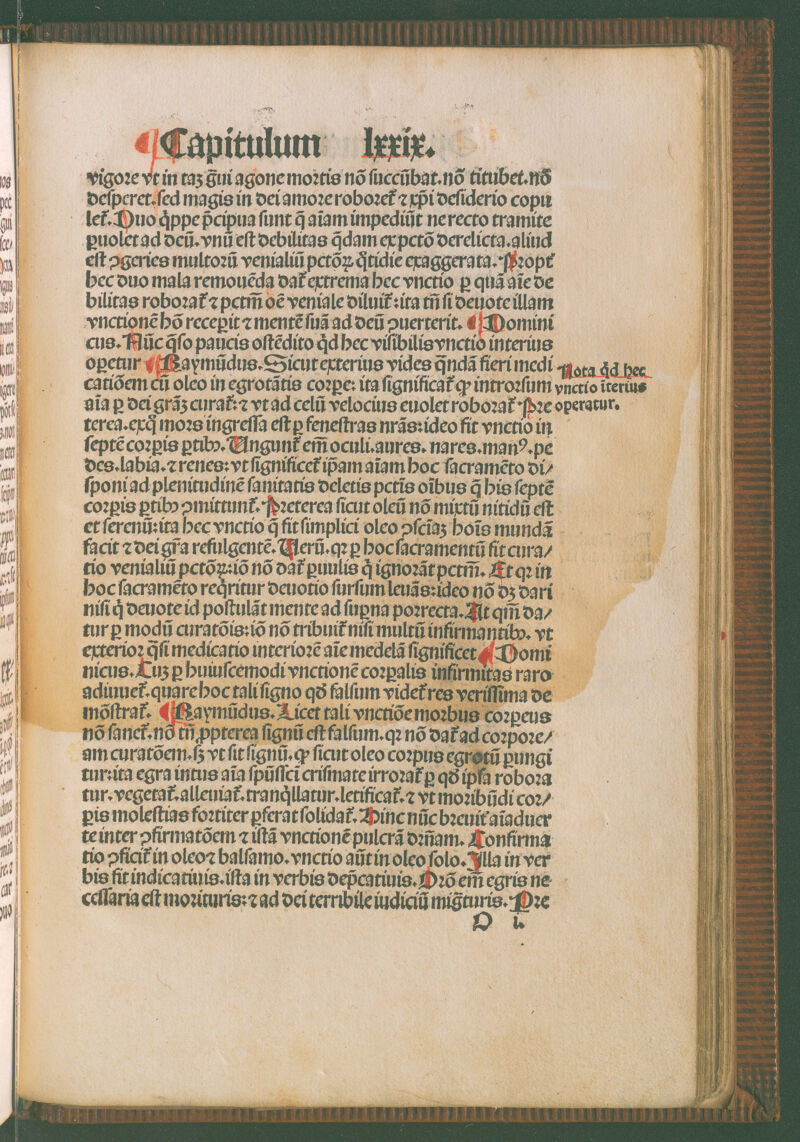 ¶ Capitulum lxxix.
vigoꝛe vt in taꝫ g̃ui agone moꝛtis nõ ſuccũbat. nõ titubet. nõ
deſperet. ſed magis in dei amoꝛe roboꝛet̃ ⁊ xp̃i deſiderio copu
let̃. Duo q̃ppe p̃cipua ſunt q̃ aĩam impediũt ne recto tramite
ꝑuolet ad deũ. vnũ eſt debilitas q̃dam ex pctõ derelicta. aliud
eſt ꝯgeries multoꝛũ venialiũ pctõꝝ q̃tidie exaggerata. Pꝛopt̃
hec duo mala remouẽda dat̃ extrema hec vnctio ꝑ quã aĩe de
bilitas roboꝛat̃ ⁊ pctm̃ oẽ veniale diluit̃: ita tñ ſi deuote illam
vnctionẽ hõ recepit ⁊ mentẽ ſuã ad deũ ꝯuerterit. ¶ Domini
cus. Nũc q̃ſo paucis oſtẽdito q̃d hec viſibilis vnctio interius
opetur ¶ Raymũdus. Sicut exterius vides q̃ndã fieri medi
catiõem cũ oleo in egrotãtis coꝛpe: ita ſignificat̃ ꝙ introꝛſum
aĩa ꝑ dei grãꝫ curat̃: ⁊ vt ad celũ velocius euolet roboꝛat̃ Pꝛe
terea. ex q̃ moꝛs ingreſſa eſt ꝑ feneſtras nr̃as: ideo fit vnctio in
ſeptẽ coꝛpis ꝑtibꝰ. Ungunt̃ em̃ oculi. aures. nares. manꝰ. pe
des. labia. ⁊ renes: vt ſignificet̃ ip̃am aĩam hoc ſacramẽto di⸗
ſponi ad plenitudinẽ ſanitatis deletis pctĩs oĩbus q̃ his ſeptẽ
coꝛpis ꝑtibꝰ ꝯmittunt̃. Pꝛeterea ſicut oleũ nõ mixtũ nitidũ eſt
et ſerenũ: ita hec vnctio q̃ fit ſimplici oleo ꝯſciãꝫ hoĩs mundã
facit ⁊ dei gr̃a refulgentẽ. Uerũ. qꝛ ꝑ hoc ſacramentũ fit cura⸗
tio venialiũ pctõꝝ: iõ nõ dat̃ ꝑuulis q̃ ignoꝛãt pctm̃. Et qꝛ in
hoc ſacramẽto req̃ritur deuotio ſurſum leuãs: ideo nõ dꝫ dari
niſi q̃ deuote id poſtulãt mente ad ſuꝑna poꝛrecta. At qm̃ da⸗
tur ꝑ modũ curatõis: iõ nõ tribuit̃ niſi multũ infirmantibꝰ. vt
exterioꝛ q̃ſi medicatio interioꝛẽ aĩe medelã ſignificet ¶ Domi
nicus. Cuꝫ ꝑ huiuſcemodi vnctionẽ coꝛpalis infirmitas raro
adiuuet̃. quare hoc tali ſigno qð falſum videt̃ res veriſſima de
mõſtrat̃. ¶ Raymũdus. Licet tali vnctiõe moꝛbus coꝛpeus
nõ ſanet̃. nõ tñ ꝓpterea ſignũ eſt falſum. qꝛ nõ dat̃ ad coꝛpoꝛe⸗
am curatõem. ſꝫ vt ſit ſignũ. ꝙ ſicut oleo coꝛpus egrotũ ꝑungi
tur: ita egra intus aĩa ſpũſſci criſmate irroꝛat̃ ꝑ qð ip̃ſa roboꝛa
tur. vegetat̃. alleuiat̃. tranq̃llatur. letificat̃. ⁊ vt moꝛibũdi coꝛ⸗
pis moleſtias foꝛtiter ꝑferat ſolidat̃. Hinc nũc bꝛeuit̃ aĩaduer
te inter ꝯfirmatõem ⁊ iſtã vnctionẽ pulcrã dr̃iam. Confirma
tio ꝯficit̃ in oleo ⁊ balſamo. vnctio aũt in oleo ſolo. Illa in ver
bis fit indicatiuis. iſta in verbis dep̃catiuis. Oꝛõ em̃ egris ne
ceſſaria eſt moꝛituris: ⁊ ad dei terribile iudiciũ mig̃turis. Pꝛe
O i.
Nota q̃d hec
vnctio ĩterius
operatur.